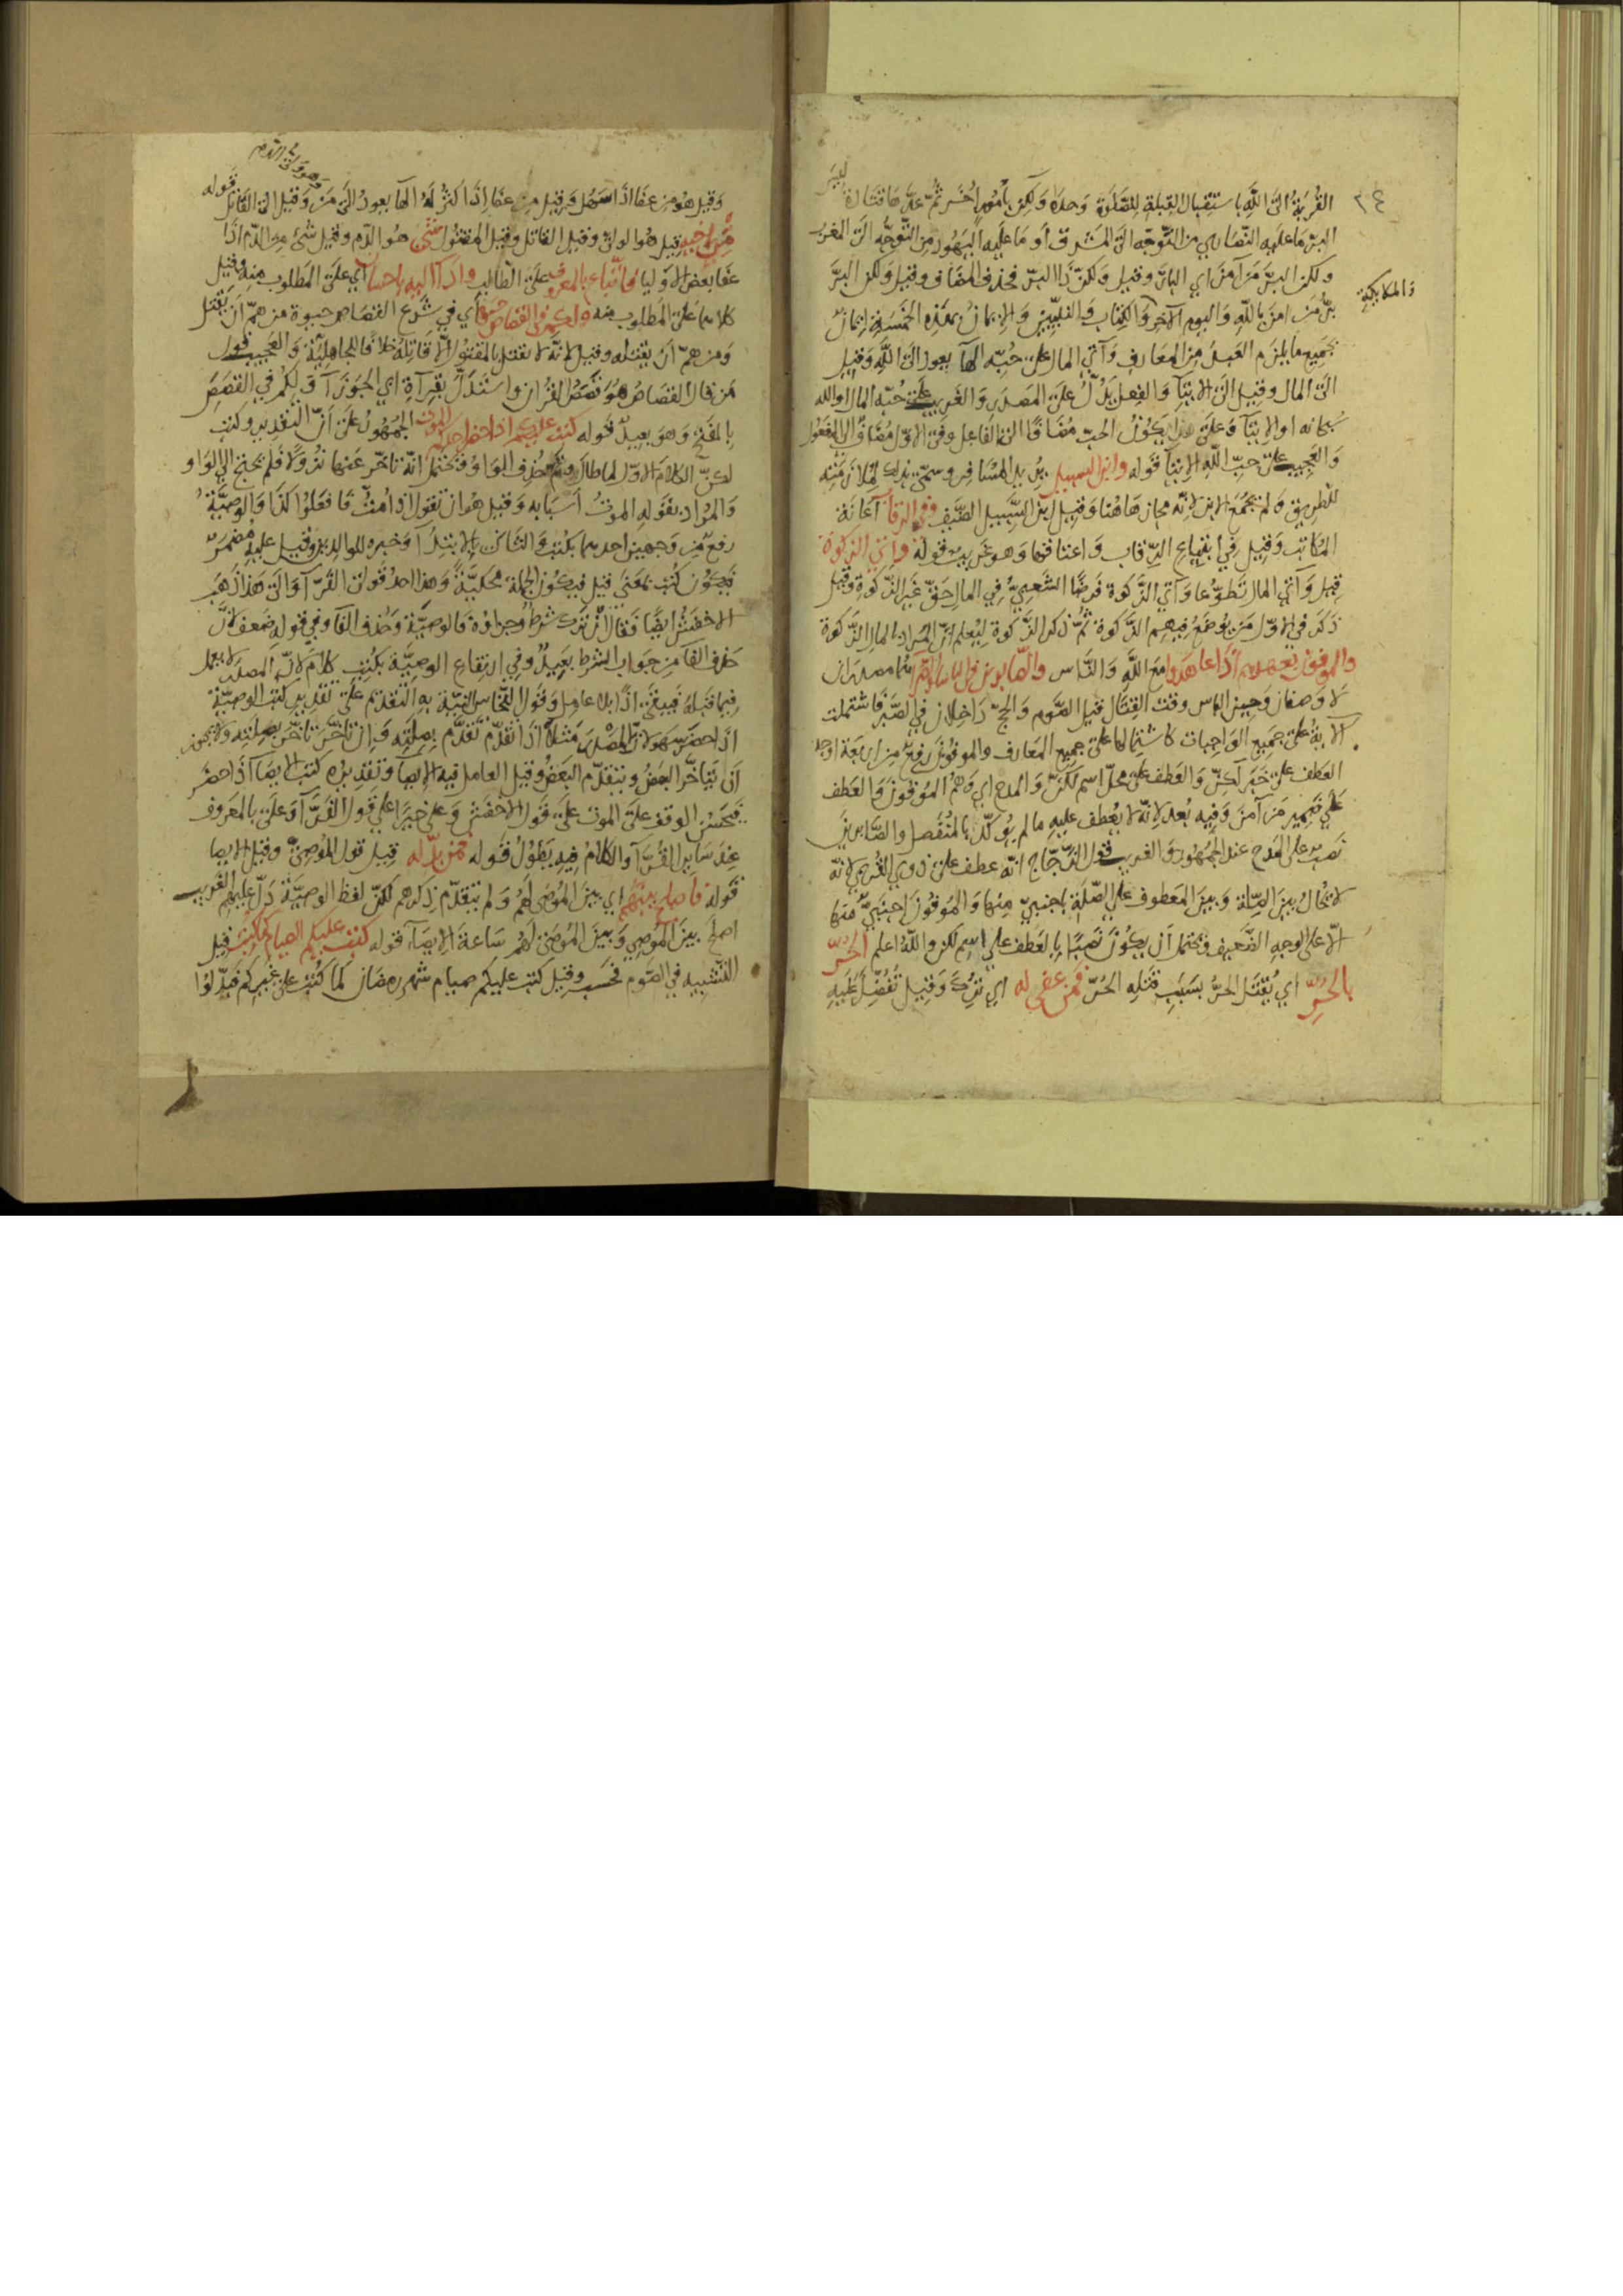 ٢٤
القُربَةُ الى اللّهِ باستقبال القِبلةِ للصَّلَوة وَحدهَا وَلكن بأمُورٍ أُخَر ثمّ عدّها فقال لَيسَ
البرّ ما عليه النّصَاري من التّوجّه الى المَشرق أو مَا عليه اليَهُود من التّوجُّه الى المغرب
ولكن البرَّ مَن آمن اي البارّ وقيل ولكنّ ذا البرّ فحذف المضَاف وقيل ولكن البرَّ
برُّ مَن امن بالله واليوم الآخر وَالكِتاب وَالنبيّين وَالايمان بهَذِه الخمسَةِ ايمانٌ
والملايكة
بجَمِيع ما يلزم العَبدَ مِن المعَارف وَآتي المال على حُبّه الهَا يعود الى اللّه وَقيل
الى المال وقيل الى الايتآ وَالفِعل يَدُلّ على المَصدَر وَالغَريب على حُبّه المال او الله
سُبحانه او الايتآ وَعلى هذا يَكُونُ الحبّ مُضَافًا الى الفَاعِل وفي الاوّل مُضَافٌ الى المفعُول
وَالعَجيب على حبّ اللّه الايتآ قَوله وابن السبيل يريد المسَافر وسمّي بذلك لملازمته
للطّريق وَلم يُجمَع الابن لانّه مجاز هَاهُنا وَقيل ابن السَّبيل الضّيف وفي الرقاب اعَانَة
المُكَاتب وَقيل في ابتِياع الرّقاب وَاعتاقها وَهو غَريب قوله وآتي الزكوة
قيل وَآتي المال تَطوّعا وَآتي الزّكوة فَرضًا الشّعبيّ في المال حَقّ غَير الزّكوة وقيل
ذَكر في الاوّل مَن يُوضَعُ فيهم الزّكوة ثمّ ذكر الزّكوة ليُعلم انّ المُراد بالمال الزّكوة
والموفون بعهدهم اذا عاهدوا مع اللَّه وَالنَّاس والصّابرين في الباسا والضّرّا هما مصدران
لا وَصفان وَحين الباس وقت القتال قيل الصّوم وَالحجّ دَاخِلان في الصّبر فاشتملت
الآية على جَميع الوَاجبات كاشتمالها على جميع المعَارف والموفون رفعٌ من اربعَة اوجه
العَطف على خبَر لَكنّ وَالعَطف على محلّ اسم لكنّ وَالمدح اي وَهُم المُوفون وَالعَطف
على ضَمِير مَن آمن وَفيه بُعد لانّه لا يُعطف عليه ما لم يؤكّد بالمُنفَصل والصّابرين
نصب على المَدح عند الجمهُور وَالغريب قول الزّجّاج انّه عطف على ذوي القُربى لانّه
لا يحَال بينَ الصّلة وَبينَ المَعطوف على الصّلَة باجنبيّ منها وَالمُوفون اجنَبيٌّ منها
الّا على الوجه الضّعيف وَيحتمل اَن يكُون نَصبًا بالعَطف على اسِم لكن واللّهُ اعلم الحُرّ
بالحُرِّ اي يُقتَل الحرُّ بسَبَبِ قتله الحُرّ فمن عفى له اي تُرِكَ وَقيل تُفُضِّلَ عَليهِ
وَقيل هُو من عفَا اذَا سَهُل وَقيل من عفَا اذا كَثُر لَهُ الهَا يعودُ الى مَن وَقيل الى القَاتل قَوله
وَهو ولىّ الدّم
من اخيه قيل هُو الولىّ وقيل القاتل وقيل المقتُول شئ هُو الدّم وقيل شئ من الدّم اذا
عفَا بعض الاوليا فاتّباع بالمعروف على الطّالب واداءٌ اليه باحسان اي على المَطلوب منه وقيل
كلاهما على المَطلوب منه ولكم في القصاص حيوة اي في شَرع القصَاص حيوة من همّ ان يَقتل
وَمَن هَمّ اَن يقتله وقيل لانّه لا يقتل بالمَقتُول الّا قَاتِلهُ خلافا للجاهليّة وَالعَجيب قول
مَن قال القصَاص هُو قَصَص القُران واستَدَلّ بقرآة ابي الجَوزآ وَلكُم في القَصَصِ
بالفَتح وَهو بعيدٌ قوله كتب عليكم اذا حضر احدكم الموت الجُمهُور على اَنّ التّقدير وكتب
لكنّ الكلامَ الاوّل لما طالَ حُذِف الوَاو وَيحتمل انّه تاخّر عنها نزولا فلم يحتج الى الوَاو
وَالمُراد بقَوله الموتُ أسبَابه وَقيل هُو ان تقول اذا متُّ فافعَلوا كذا وَالوصيَّةُ
رفعٌ من وَجهَين احدهما بكُتِبَ وَالثاني بالابتدآ وَخبره للوالدين وقيل عليه مُضمَرٌ
فيكُون كُتِبَ بمعنى قيل فيكُون الجملة محكيَّةً وَهذا احد قولى الفَرّآ وَالى هَذا ذَهَبَ
الاخفَش ايضًا فَقال ان تَرَك شرطٌ وَجزاؤه فالوصيّة وَحذف الفآ وفي قوله ضعف لاَنَّ
حَذف الفآ من جَواب الشرط بعِيدٌ وفي ارتفاع الوصيَّة بكُتِبَ كلامٌ لانّ المصدَر لا يعمل
فيما قبله فيبقى اذًا بلا عامِل وَقول النّحّاس النّيّة به التّقدّم على تقدير كتب الوصيّة
اذا حضَر سَهوٌ لانّ المَصدر مثلاً اذا تقدّم تَقدَّم بِصلَتِه وَان تاخّر تاخّر بصِلته ولا يجُوز
اَن يَتاخَّر البَعضُ ويتقدّم البَعضُ وقيل العامل فيه الايصآ وَتقديره كتب الايصَآ اذا حضَر
فيحسُن الوقف على الموت على قول الاخفَش وَعلى خيرًا على قول الفَرَّآ وَعلى بالمَعروف
عِندَ سَاير القُرَّآ والكلامُ فيه يَطُول قوله فمن بدّله قيل قول المُوصِي وقيل الايصآ
قَوله فاصلح بينهُم اي بينَ المُوصَى لهُم وَلم يتقدّم ذِكرهم لكنّ لفظ الوصيّة دَلّ عليهم الغَريب
اصلح بينَ المُوصِي وَبينَ المُوصَى لهُم سَاعةَ الايصَآ قوله كتب عليكم الصيام كما كتب قيل
التّشبيه في الصّوم فحَسب وقيل كتب عليكم صيام شهر رمضان كما كُتِبَ على غيركم فبدّلوا